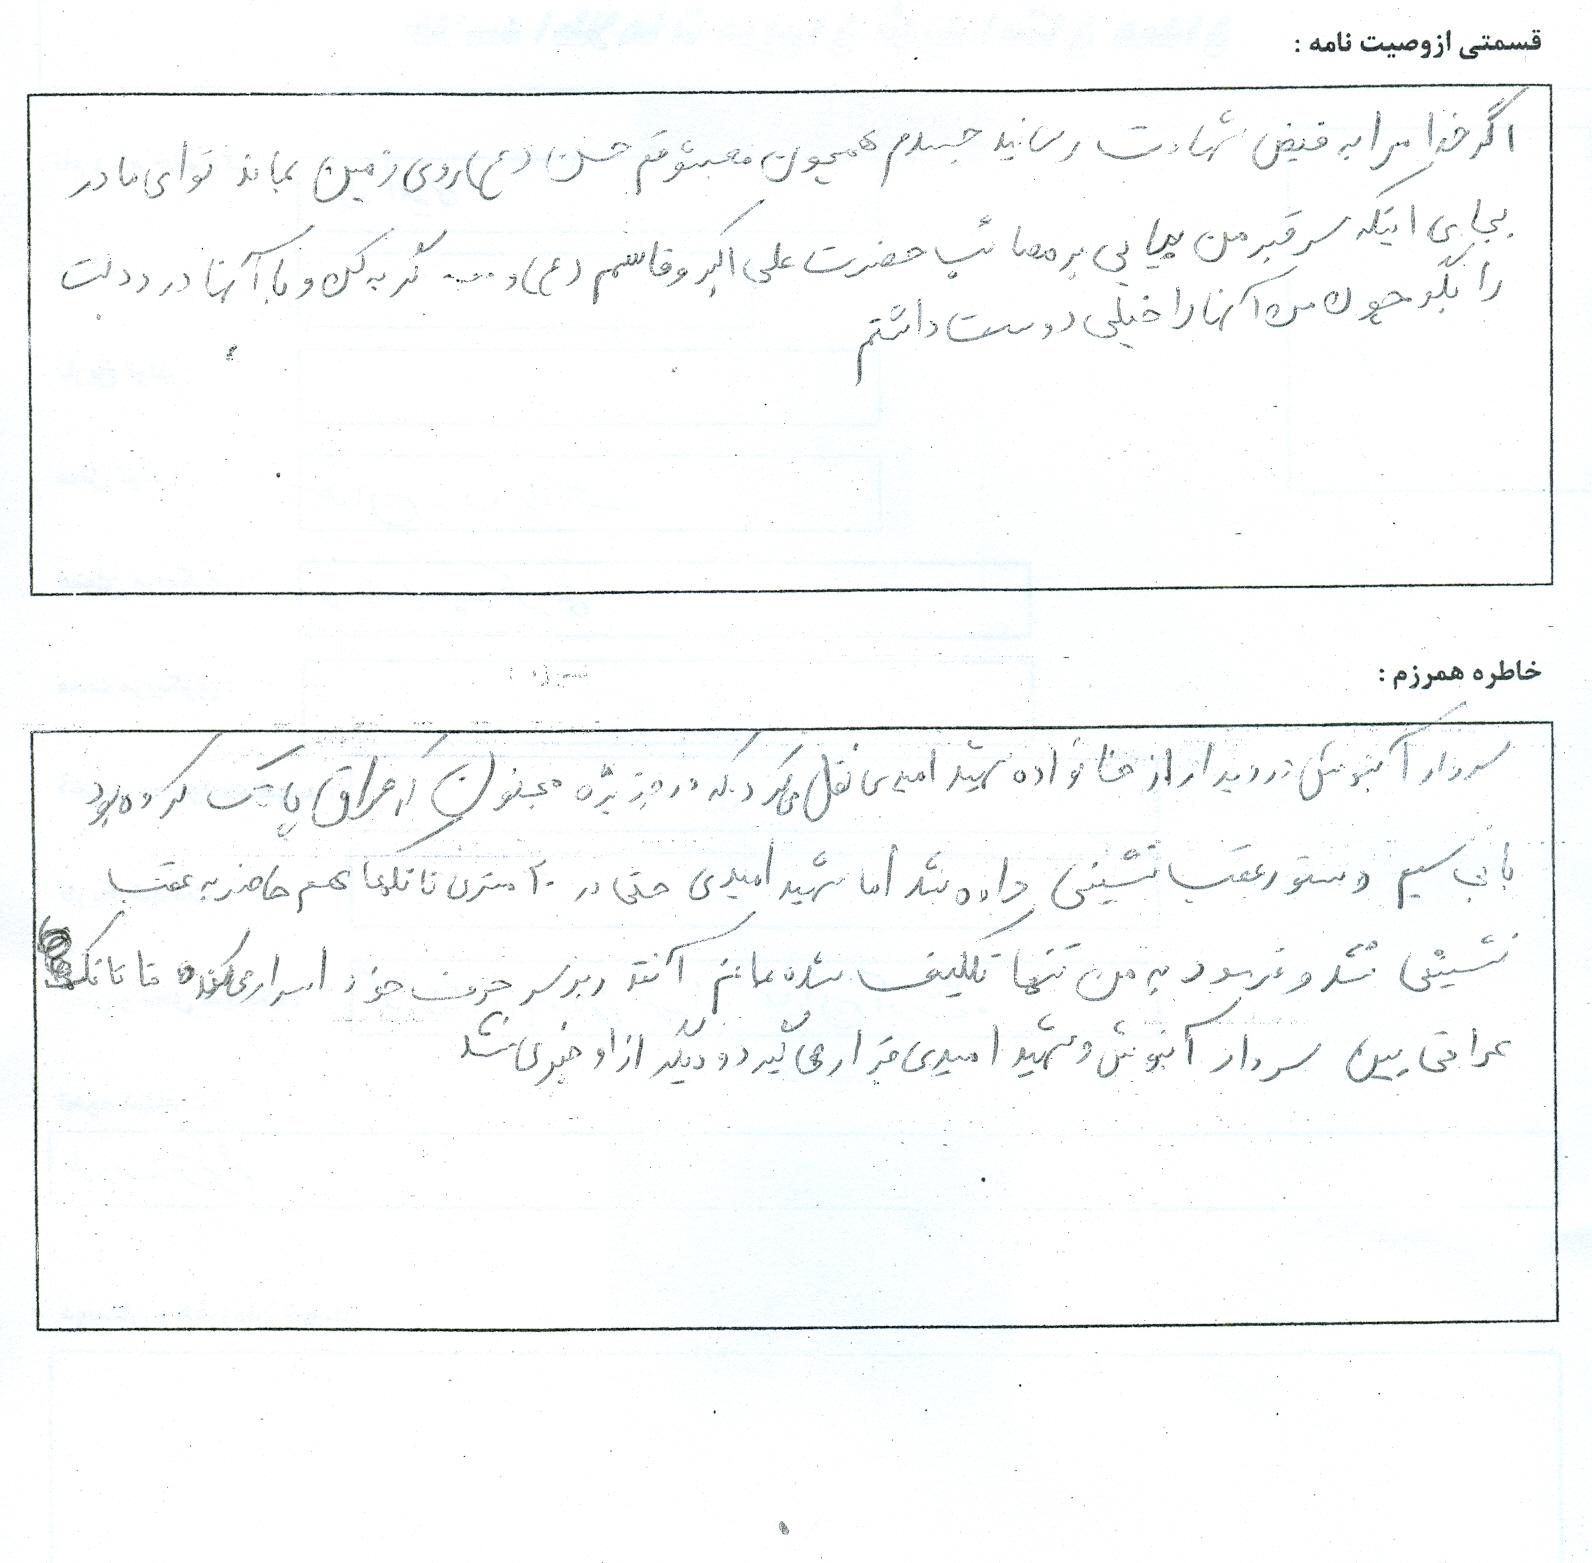 قسمتی ازوصیت نامه :
اگر خدا مرا به فیض شهادت رسانید جسدم همچون معشوقم حسن (ع) روی زمین بماند توای مادر
بجای اینکه سر قبر من بیایی بر مصائب حضرت علی اکبر و قاسم (ع) و گریه کن و با آنها درددلت
را بگو چون من آنها را خیلی دوست داشتم
خاطره همرزم :
سردار آبنوش در دیدار از خانواده شهید امیدی نقل می کرد که در جزیره مجنون که عراق پاتک کرده بود
با بی سیم دستور عقب نشینی داده شد اما شهید امیدی حتی در ۲۰ متری تانکها هم حاضر به عقب
نشینی نشد و فرمود به من تنها تکلیف شده بمانم آنقدر بر سر حرف خود اصرار می کند تا تانک
عراقی بین سردار آبنوش و شهید امیدی قرار می گیرد و دیگر از او خبری نشد